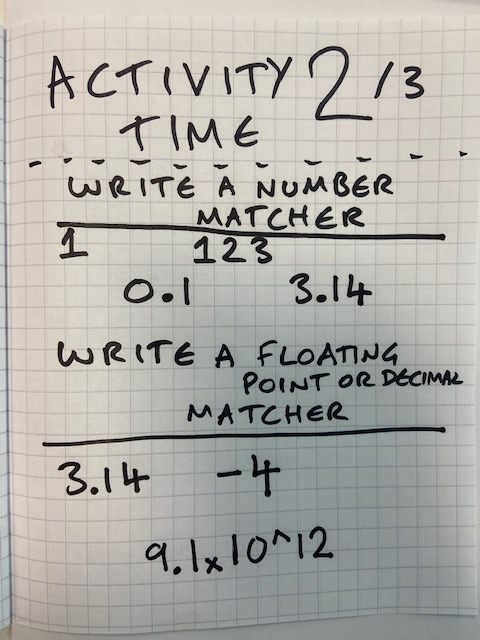 ACTIVITY 2/3
TIME
WRITE A NUMBER
MATCHER
1 123
0.1 3.14
WRITE A FLOATING
POINT OR DECIMAL
MATCHER
3.14 -4
9.1x10^12